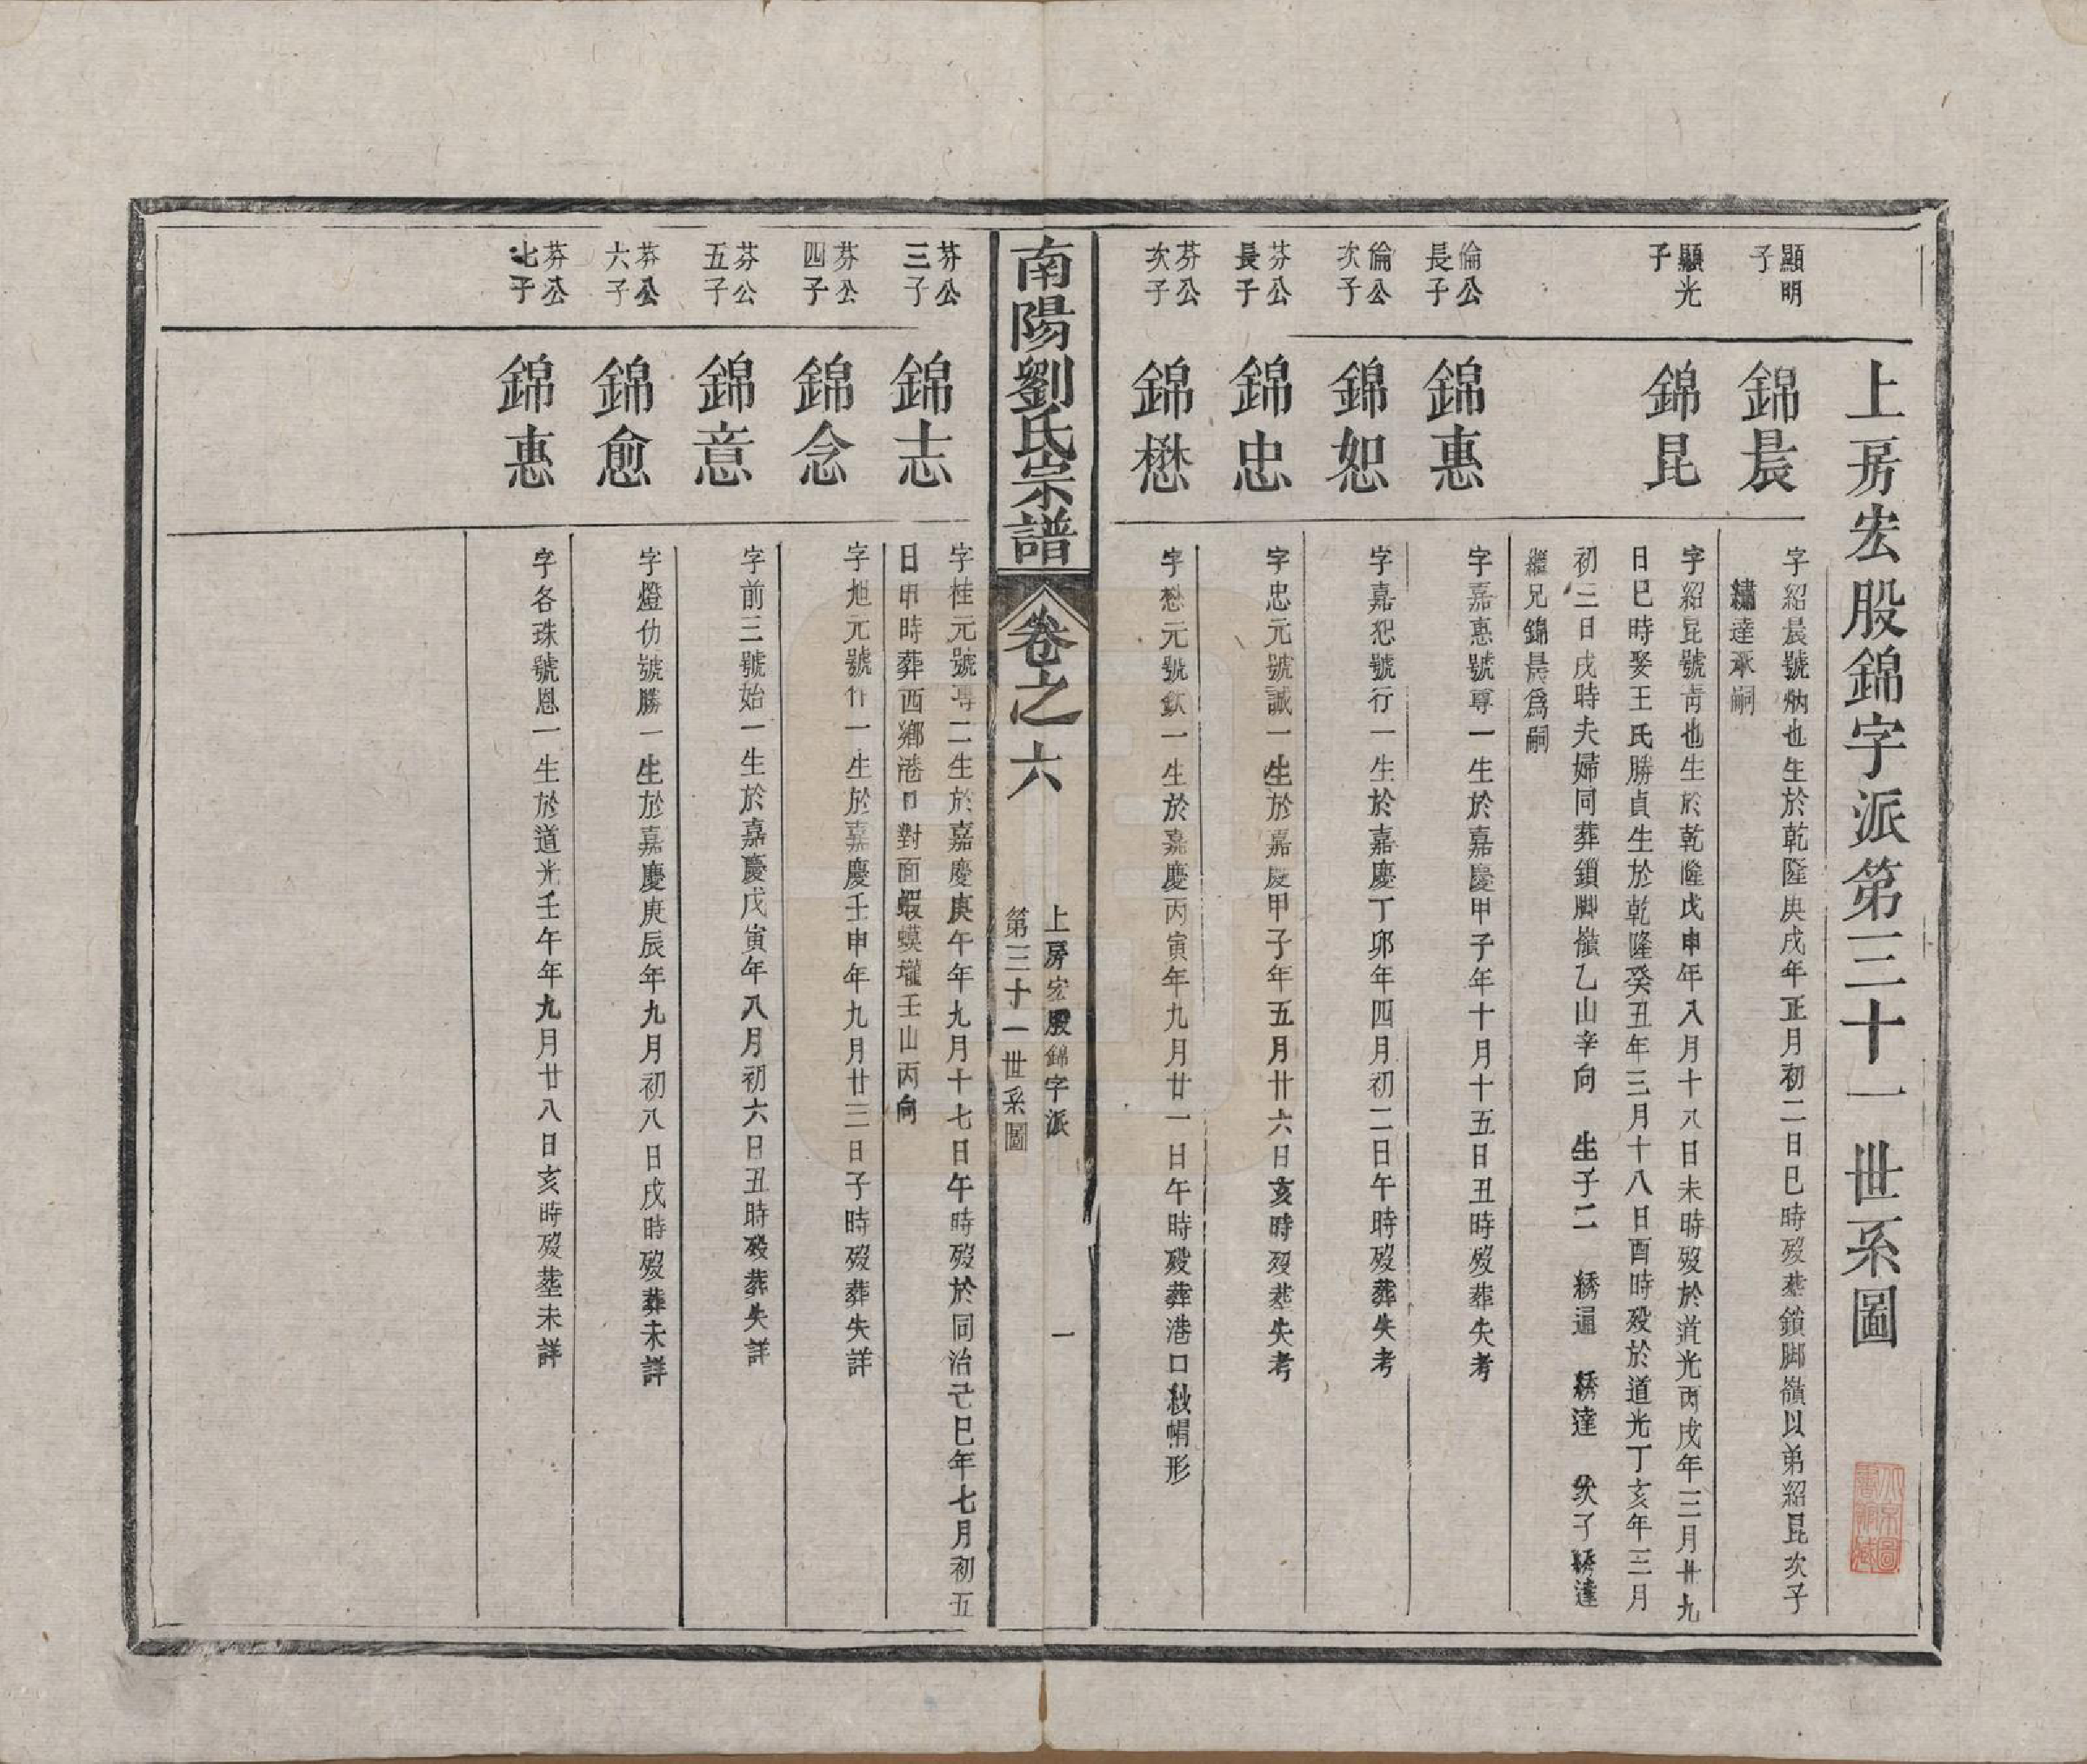 上房宏股錦字派第三十一世系圖
顯明
子
錦晨
字紹晨號炳也生於乾隆庚戌年正月初二日巳時歿塟鎖脚嶺以弟紹昆次子
繡達承嗣
顯光
子
錦昆
字紹昆號青也生於乾隆戊申年八月十八日未時歿於道光丙戌年三月廿九
日巳時娶王氏勝貞生於乾隆癸丑年三月十八日酉時歿於道光丁亥年三月
初三日戌時夫婦同葬鎖脚嶺乙山辛向 生子二 綉逼 綉達 次子綉達
繼兄錦晨爲嗣
倫公
長子
錦惠
字嘉惠號尊一生於嘉慶甲子年十月十五日丑時歿葬失考
倫公
次子
錦恕
字嘉犯號行一生於嘉慶丁卯年四月初二日午時歿葬失考
芬公
長子
錦忠
字忠元號誠一生於嘉慶甲子年五月廿六日亥時歿塟失考
芬公
次子
錦懋
字懋元號欽一生於嘉慶丙寅年九月廿一日午時歿葬港口秋帽形
南陽劉氏宗譜
卷之六
上房宏股錦字派
第三十一世系圖
一
芬公
三子
錦志
字桂元號尊二生於嘉慶庚午年九月十七日午時歿於同治己巳年七月初五
日申時葬西鄉港口對面蝦蟆壠壬山丙向
芬公
四子
錦念
字旭元號什一生於嘉慶壬申年九月廿三日子時歿葬失詳
芬公
五子
錦意
字前三號始一生於嘉慶戊寅年八月初六日丑時歿葬失詳
芬公
六子
錦愈
字燈仂號勝一生於嘉慶庚辰年九月初八日戌時歿葬未詳
芬公
七子
錦惠
字各珠號恩一生於道光壬午年九月廿八日亥時歿塟未詳